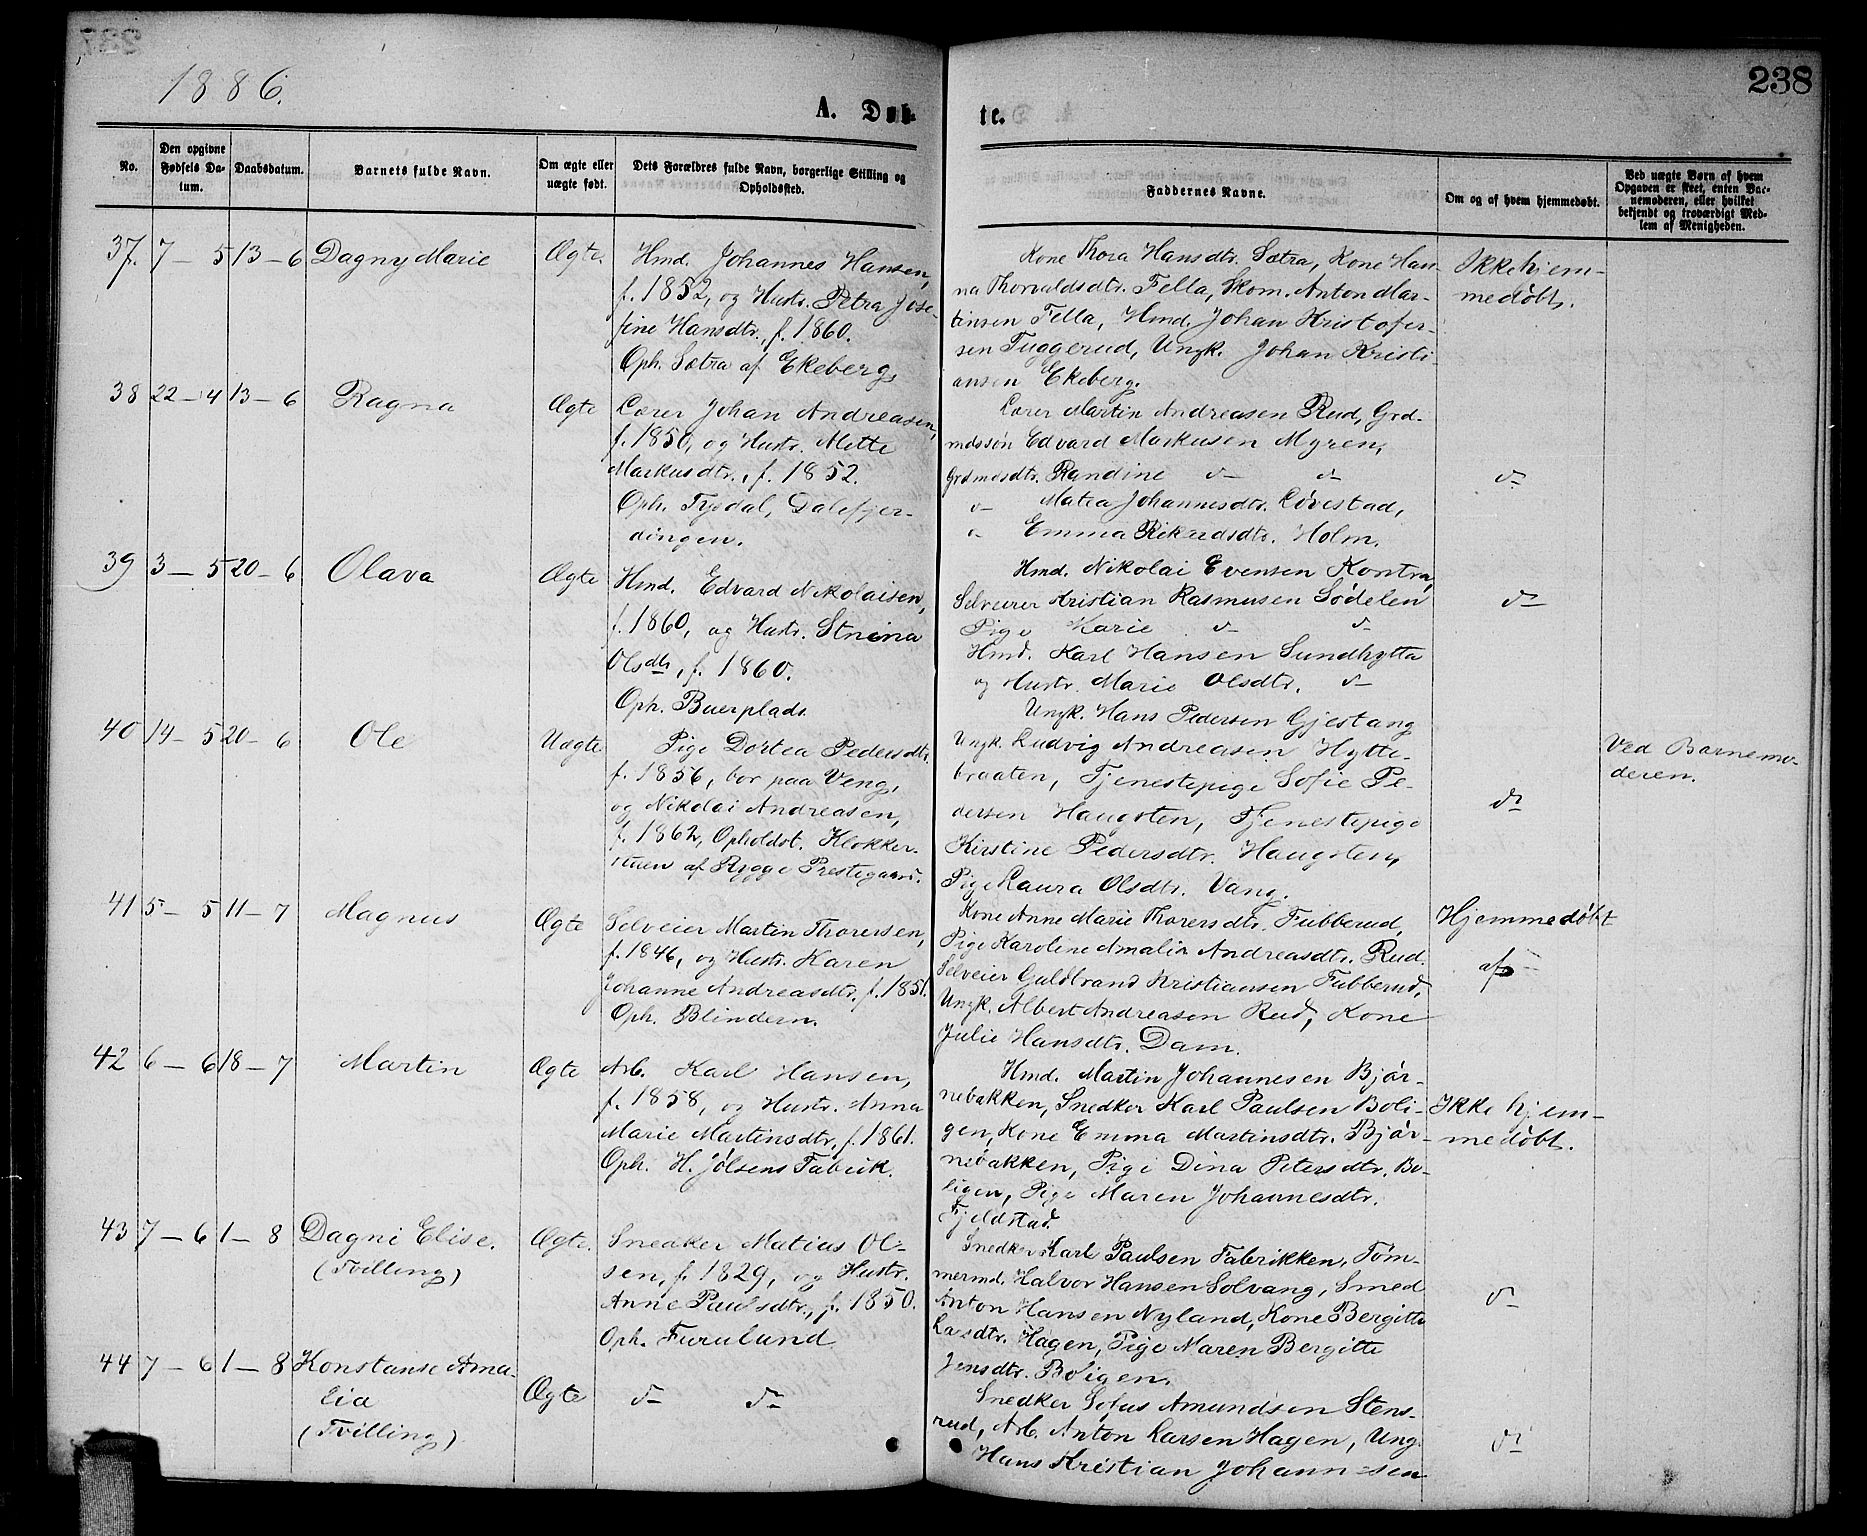 1886.
238
A. Døb-
te.
No.
Den opgivne Fødsels Datum.
Daabsdatum.
Barnets fulde Navn.
Om ægte eller uægte født.
Dets Forældres fulde Navn, borgerlige Stilling og Opholdssted.
Faddernes Navne.
Om og af hvem hjemmedøbt.
Ved uægte Børn af hvem Opgaven er skeet, enten Barnemoderen, eller hvilket bekjendt og troværdigt Medlem af Menigheden.
37. 7-5 13-6 Dagny Marie Ægte.
Hmd. Johannes Hansen,
f. 1852, og Hustr. Petra Jose-
fine Hansdtr., f. 1860.
Oph. Sætra af Ekeberg.
Kone Thora Hansdtr. Sætra, Kone Han-
na Thorvaldsdtr. Fella, Skom. Anton Mar-
tinsen Fella, Hmd. Johan Kristofer-
sen Tuggerud, Ungk. Johan Kristi-
ansen Ekeberg.
Ikke hjem-
medøbt.
38 22-4 13-6 Ragna Ægte
Lærer Johan Andreasen,
f. 1850, og Hustr. Mette
Markusdtr., f. 1852.
Oph. Tysdal, Dalefjer-
dingen.
Lærer Martin Andreasen Rud, Grd-
mdssøn Edvard Markusen Myren,
Grdmdsdtr. Randine d- d-
d- Matea Johannesdtr. Løvestad,
d- Emma Rikardsdtr. Holm.
d-
39 3-5 20-6 Olava Ægte
Hmd. Edvard Nikolaisen,
f. 1860, og Hustr. Stnina
Olsdtr, f. 1860.
Oph. Buerplads.
Hmd. Nikolai Evensen Kontra,
Selveier Kristian Rasmusen Sødelen
Pige Marie d- d-
Hmd. Karl Hansen Sundhytta
og Hustr. Marie Olsdtr. d-
d-
40 14-5 20-6 Ole Uægte
Pige Dortea Pedersdtr.
f. 1856, bor paa Veng,
og Nikolai Andreasen,
f. 1862, Opholdst. Klokker-
stuen af Rygge Prestegaard.
Ungk. Hans Pedersen Gjestang
Ungk. Ludvig Andreasen Hytte-
braaten, Tjenestepige Sofie Pe-
dersen Haugsten, Tjenestepige
Kirstine Pedersdtr. Haugsten,
Pige Laura Olsdtr. Vang.
d-
Ved Barnemo-
deren.
41 5-5 11-7 Magnus Ægte
Selveier Martin Thorersen,
f. 1846, og Hustr. Karen
Johanne Andreasdtr. f. 1851.
Oph. Blindern.
Kone Anne Marie Thorersdtr. Fubberud,
Pige Karoline Amalia Andreasdtr. Rud.
Selveier Guldbrand Kristiansen Fubberud,
Ungk. Albert Andreasen Rud, Kone
Julie Hansdtr. Dam.
Hjemmedøbt
af
42 6-6 18-7 Martin Ægte
Arb. Karl Hansen,
f. 1858, og Hustr. Anna
Marie Martinsdtr, f. 1861.
Oph. H. Jølsens Fabrik.
Hmd. Martin Johannesen Bjør-
nebakken, Snedker Karl Paulsen Boli-
gen, Kone Emma Martinsdtr. Bjør-
nebakken, Pige Dina Petersdtr. Bo-
ligen, Pige Maren Johannesdtr.
Fjeldstad.
Ikke hjem-
medøbt.
43 7-6 1-8 Dagni Elise. Ægte.
(Tvilling)
Snedker Matias Ol-
sen, f. 1829, og Hustr.
Anne Paulsdtr, f. 1850.
Oph. Furulund
Snedker Karl Paulsen Fabrikken, Tøm-
mermd. Halvor Hansen Solvang, Smed
Anton Hansen Nyland, Kone Bergitte
Larsdtr. Hagen, Pige Maren Bergitte
Jensdtr. Boligen.
d-
44 7-6 1-8 Konstanse Ama-
lia
(Tvilling)
Ægte
d- d-
Snedker Sofus Amundsen Stens-
rud, Arb. Anton Larsen Hagen, Ung.
Hans Kristian Johannesen
d-